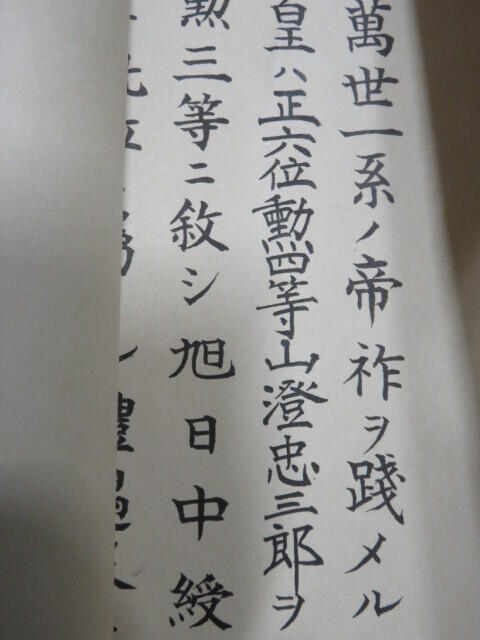 萬世一系ノ帝祚ヲ踐メル
皇ハ正六位勳四等山澄忠三郎ヲ
勲三等ニ敘シ旭日中綬